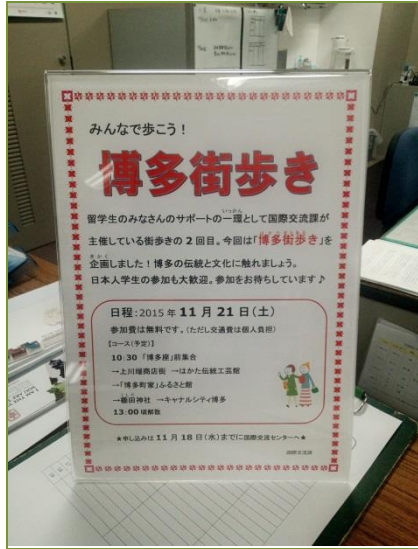 みんなで歩こう！
博多街歩き
いっかん
留学生のみなさんのサポートの一環として国際交流課が
主催している街歩きの 2 回目。今回は「博多街歩き」を
きかく
企画しました！博多の伝統と文化に触れましょう。
日本人学生の参加も大歓迎。参加をお待ちしています♪
日程：2015 年 11 月 21 日（土）
参加費は無料です。（ただし交通費は個人負担）
【コース（予定）】
10：30 「博多座」前集合
→上川端商店街 →はかた伝統工芸館
→「博多町家」ふるさと館
→櫛田神社 →キャナルシティ博多
13：00 頃解散
★申し込みは 11 月 18 日（水）までに国際交流センターへ★
国際交流課